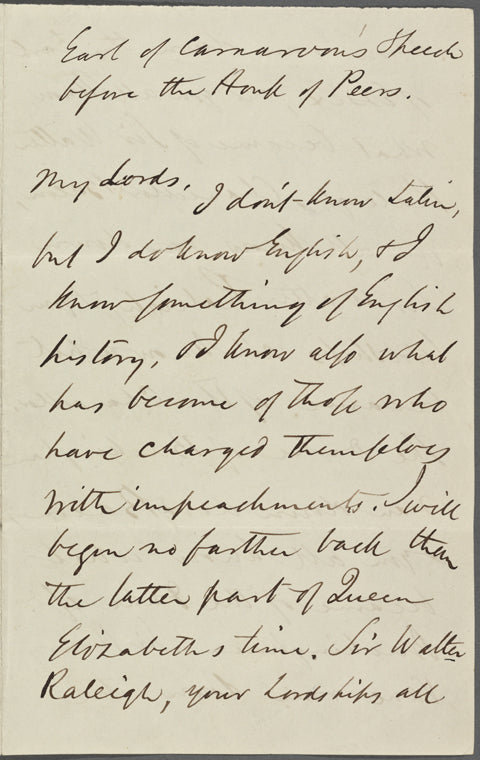 Earl of Carnarvon's Speech
before the House of Peers.
My Lords, I don't know Latin,
but I do know English, & I
know something of English
history, & I know also what
has become of those who
have charged themselves
with impeachments. I will
begin no farther back than
the latter part of Queen
Elizabeths time. Sir Walter
Raleigh, your Lordships all